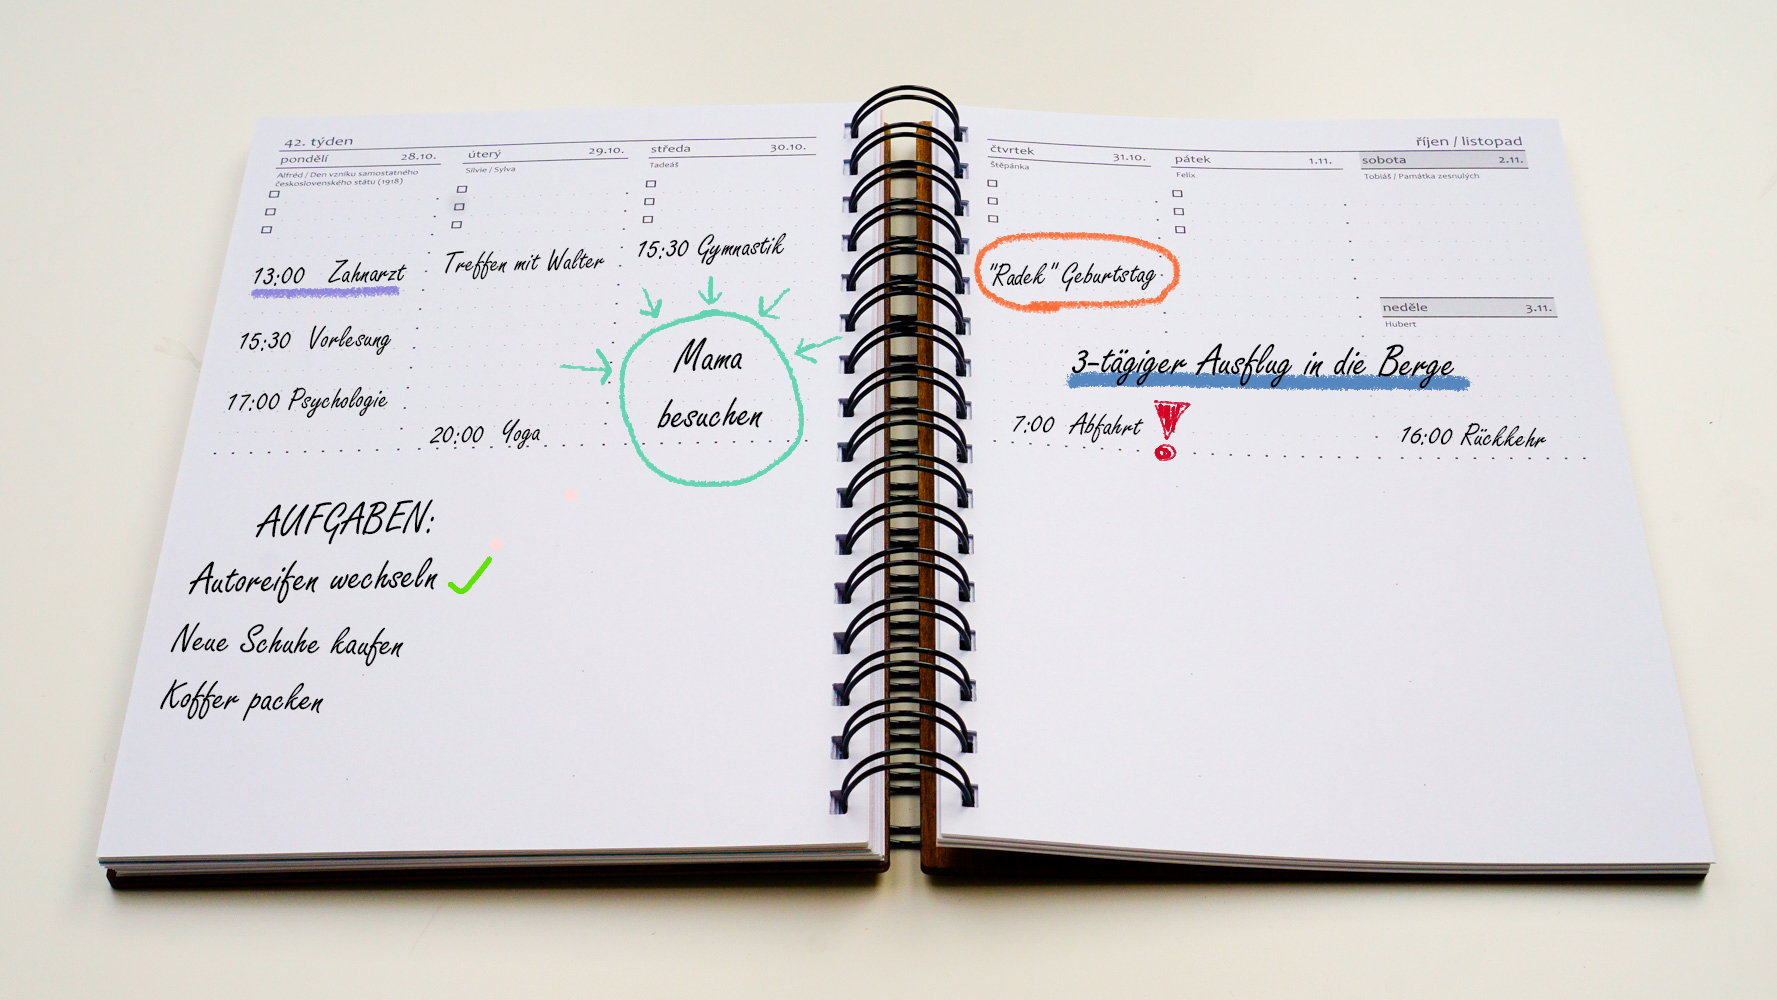 42. týden
pondělí 28.10.
Alfréd / Den vzniku samostatného
československého státu (1918)
13:00 Zahnarzt
15:30 Vorlesung
17:00 Psychologie
úterý 29.10.
Silvie / Sylva
Treffen mit Walter
20:00 Yoga
středa 30.10.
Tadeáš
15:30 Gymnastik
Mama
besuchen
AUFGABEN:
Autoreifen wechseln
Neue Schuhe kaufen
Koffer packen
říjen / listopad
čtvrtek 31.10.
Štěpánka
"Radek" Geburtstag
pátek 1.11.
Felix
sobota 2.11.
Tobiáš / Památka zesnulých
neděle 3.11.
Hubert
3-tägiger Ausflug in die Berge
7:00 Abfahrt
16:00 Rückkehr